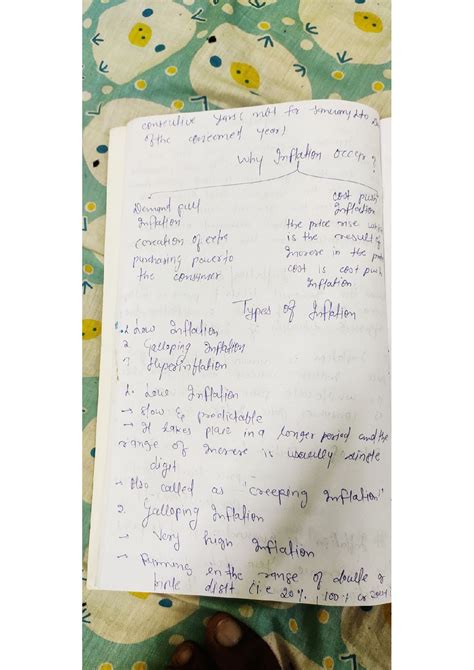 consecutive years (not for January to
of the concerned year)
Why Inflation occur?
Demand pull
Inflation
creation of extra
purchasing power to
the consumer
cost push
Inflation
the price rise
is the result of
Increse in the
cost is cost push
Inflation.
Types of Inflation
1. Low Inflation
2. Galloping Inflation
3. Hyperinflation
1. Low Inflation
→ slow & predictable
→ It takes place in a longer period and the
range of Increse is usually single
digit
→ Also called as "creeping Inflation"
2. Galloping Inflation
→ Very high Inflation
→ Running in the range of double
digit (i.e 20%, 100% or